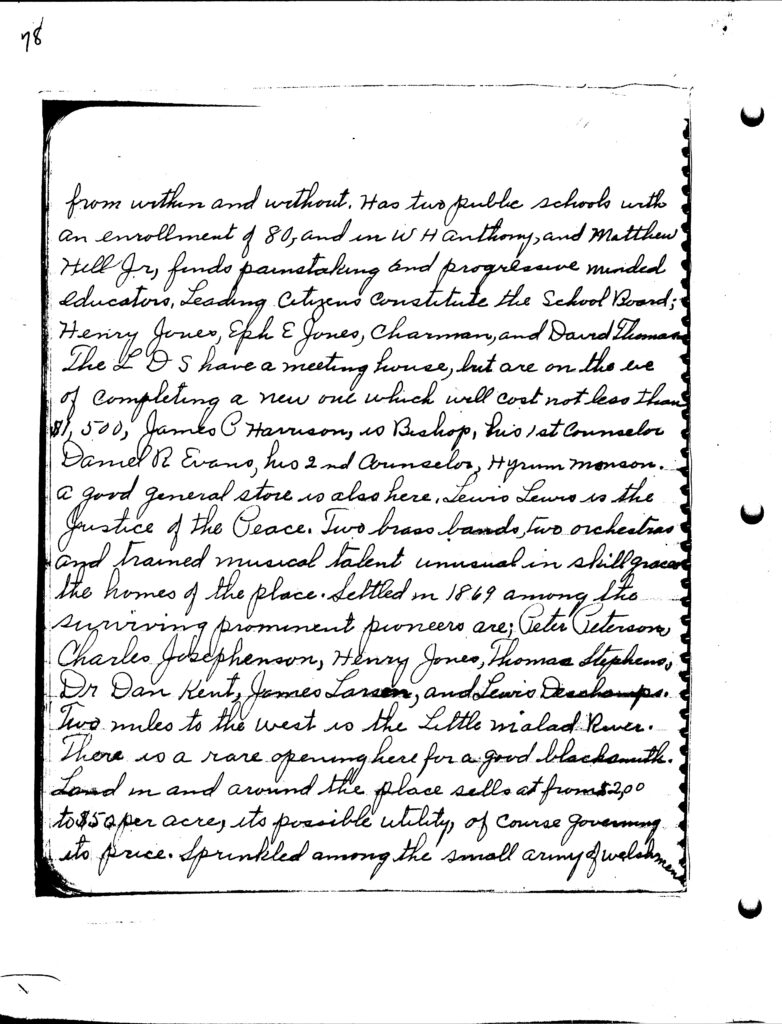 78
from within and without. Has two public schools with
an enrollment of 80, and in W H Anthony, and Matthew
Hill Jr, finds painstaking and progressive minded
educators, Leading Citizens Constitute the School Board;
Henry Jones, Eph E Jones, Charman, and David Thomas
The L D S have a meeting house, but are on the eve
of completing a new one which will cost not less than
$1,500, James C Harrison, is Bishop, his 1st Counselor
Daniel R Evans, his 2nd Counselor, Hyrum Monson.
A good general store is also here. Lewis Lewis is the
Justice of the Peace. Two brass bands, two orchestras
and trained musical talent unusual in skill graces
the homes of the place. Settled in 1869 among the
surviving prominent pioneers are; Peter Peterson,
Charles Josephenson, Henry Jones, Thomas Stephens,
Dr Dan Kent, James Larsen, and Lewis Deschamps.
Two miles to the west is the Little Malad River.
There is a rare opening here for a good blacksmith.
Land in and around the place sells at from $2,00
to $50 per acre, its possible utility, of course governing
its price. Sprinkled among the small army of welshmen